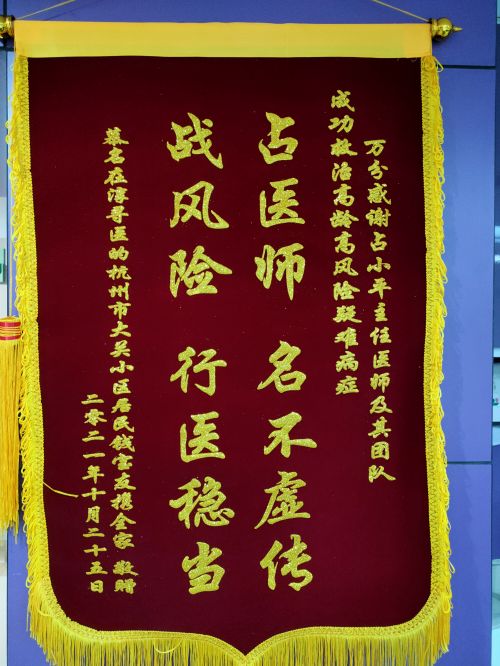 万分感谢占小平主任医师及其团队
成功救治高龄高风险疑难病症
占医师 名不虚传
战风险 行医稳当
慕名在淳寻医的杭州市大关小区居民钱宝友携全家 敬赠
二零二一年十月二十五日